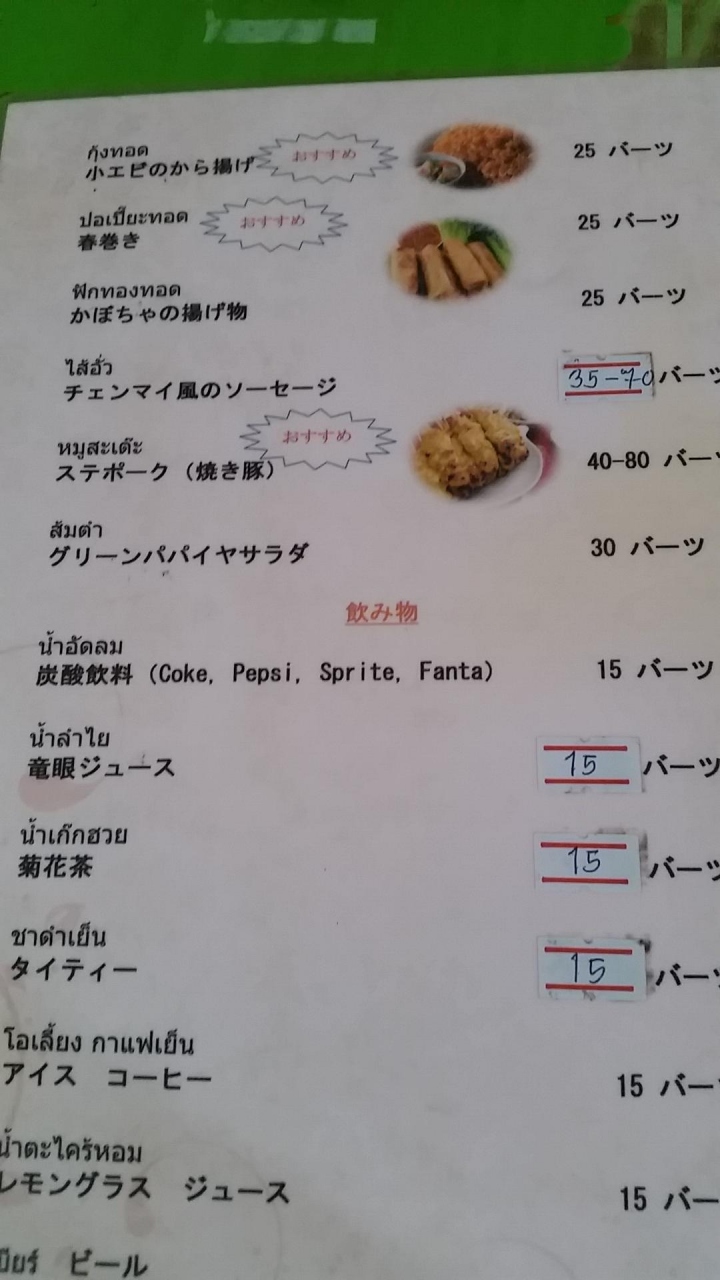 กุ้งทอด
小エビのから揚げ おすすめ 25 バーツ
ปอเปี๊ยะทอด
春巻き おすすめ 25 バーツ
ฟักทองทอด
かぼちゃの揚げ物 25 バーツ
ไส้อั่ว
チェンマイ風のソーセージ 35-70 バーツ
หมูสะเต๊ะ
ステポーク（焼き豚） おすすめ 40-80 バーツ
ส้มตำ
グリーンパパイヤサラダ 30 バーツ
飲み物
น้ำอัดลม
炭酸飲料（Coke, Pepsi, Sprite, Fanta） 15 バーツ
น้ำลำไย
竜眼ジュース 15 バーツ
น้ำเก๊กฮวย
菊花茶 15 バーツ
ชาดำเย็น
タイティー 15 バーツ
โอเลี้ยง กาแฟเย็น
アイス コーヒー 15 バーツ
น้ำตะไคร้หอม
レモングラス ジュース 15 バー
เบียร์ ビール